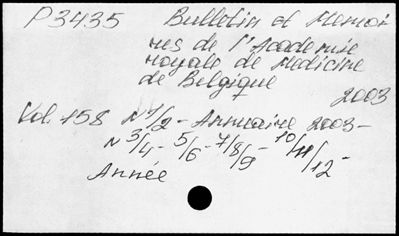 P3435 Bulletin et Memoi-
res de l'Academie
royale de Medicine
de Belgique
2003
Vol. 158 N 1/2 - Annuaire 2003 -
N 3/4 - 5/6 - 7/8/9 - 10/11/12 -
Année